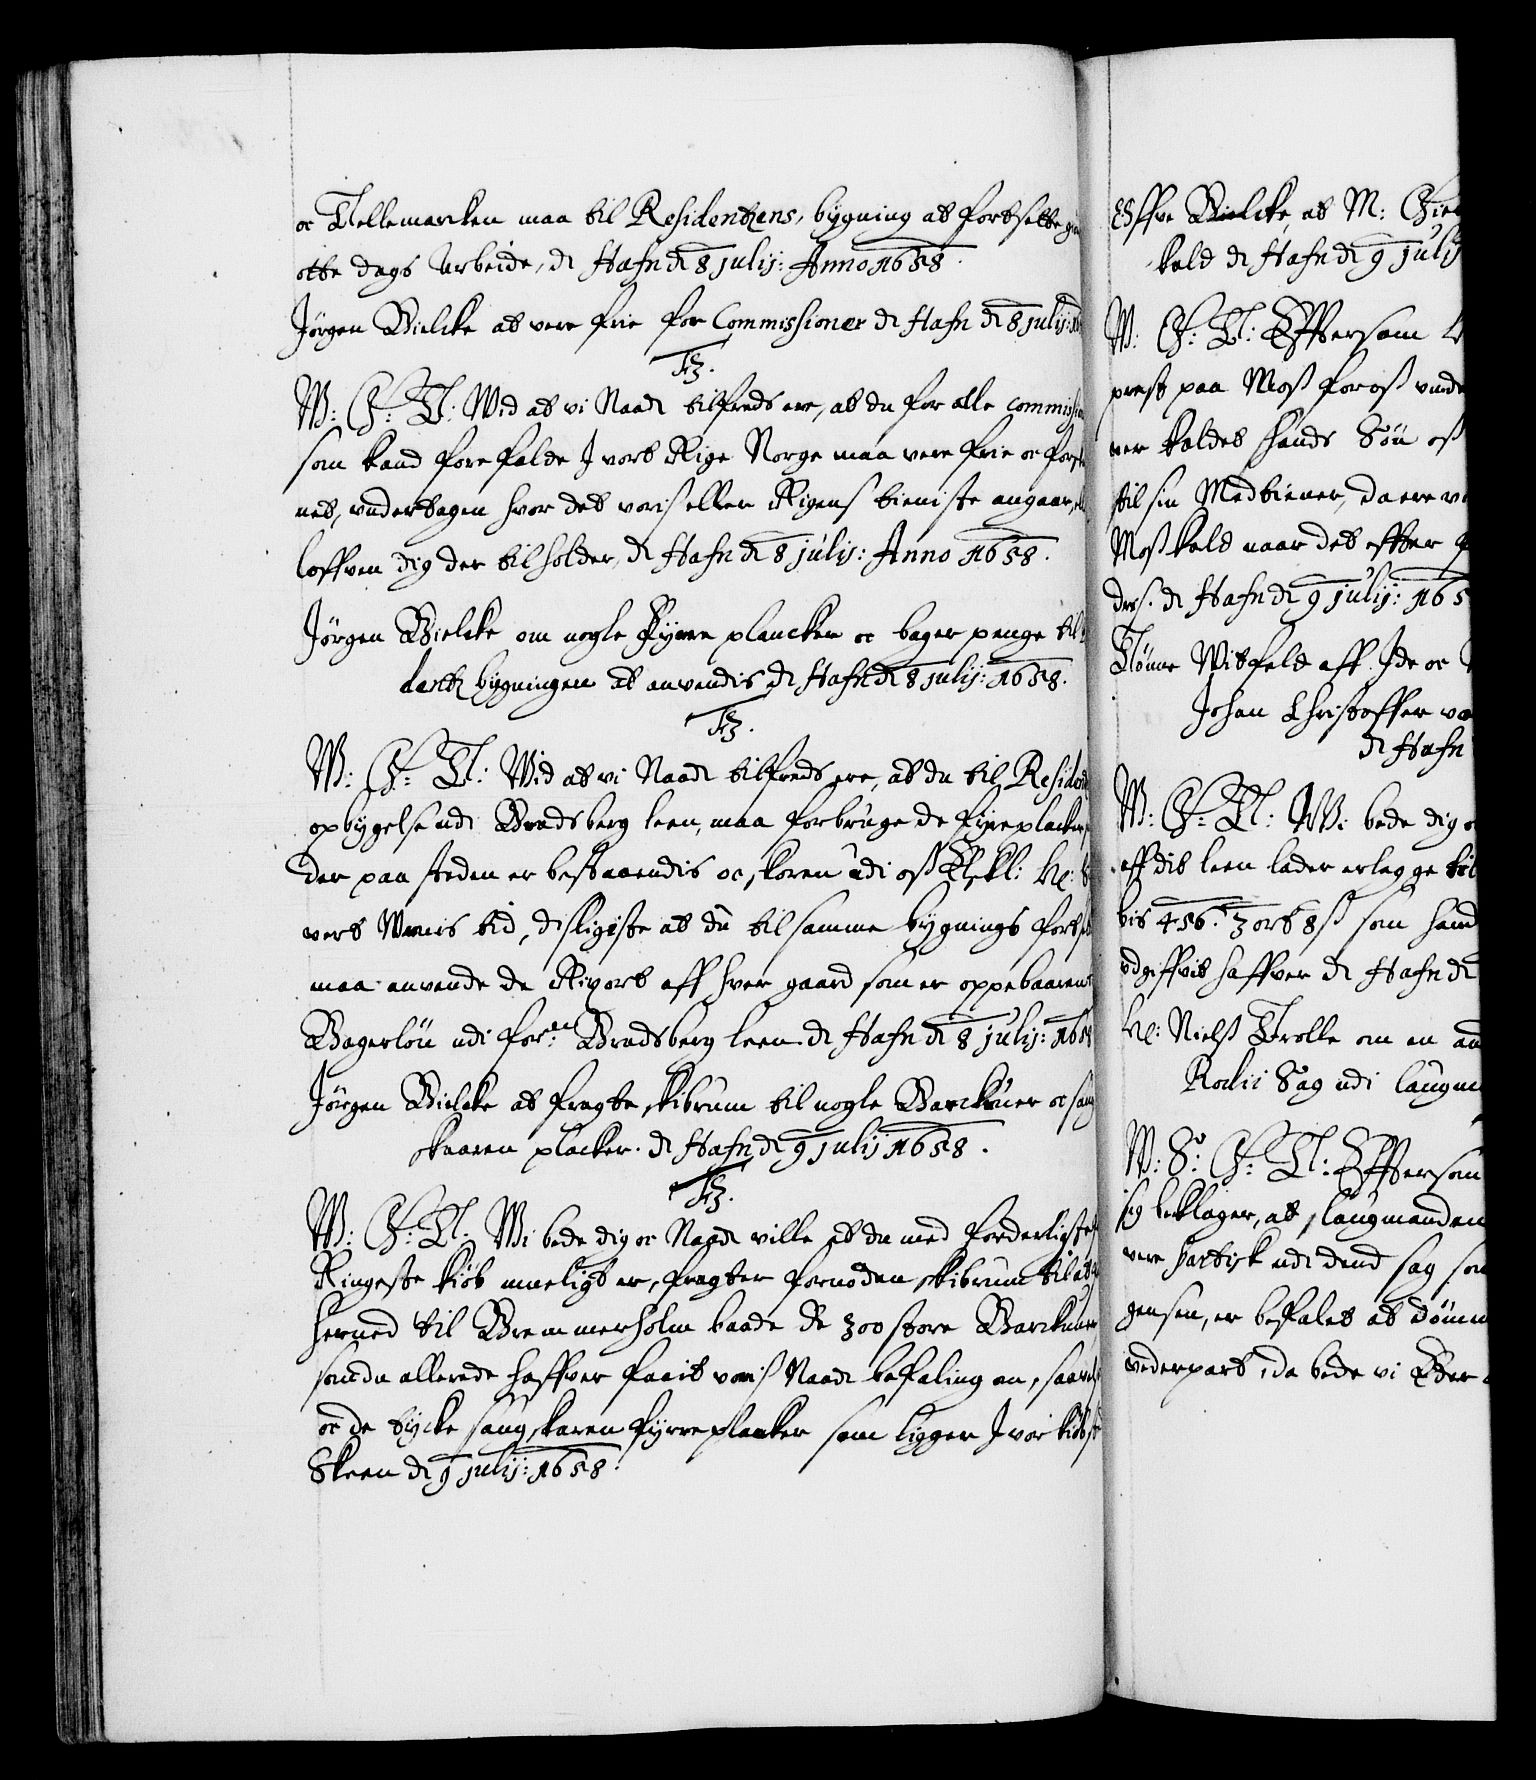 oc Tellemarcken maa til Residentzens, bygning at fortsette giør
otte dags Arbeide, dt Hafn dt 8 julij: Anno 1658.
Jörgen Bielcke at vere frie for Commissioner dt Hafn dt 8 julij: 16
F3.
W: G: T: Wid at vi Naadt tilfreds ere, at du for alle commissi
som kand forefalde J vort Rige Norge maa vere frie oc forsk
net, undertagen hvor det voris eller Rigens tieniste angaar,
loffven dig der tilholder, dt Hafn dt 8 julij: Anno 1658.
Jörgen Bielcke om nogle Fyrre plancker oc bager penge til
dentz bygningen at anvendis dt Hafn dt 8 julij: 1658.
F3.
W: G: T: Wid at vi Naadt tilfreds ere, at du til Residen
opbygelse udi Bradsberg leen, maa forbruge de fyrreplacker
der paa steden er bestaaendis oc skoren udi oss Elskl: Hr:
vert Wrnis tid, disligiste at du til samme bygnings forts
maa anvende de Rixort aff hver gaard som er oppebaaren
Bagerlön udi for:ne Bradsberg leen. dt Hafn dt 8 julij: 1658
Jörgen Bielcke at fragte skibrum til nogle Barckuner oc saug
skaaren placker. dt Hafn dt 9 julij 1658.
F3.
W: G: T: Wi bede dig oc Naadt ville at du med forderligste
Ringeste kiöb mueligt er, fragter fornöden skibrum til at
herned til Bremmerholm baade de 300 store Barckuner
som du allerede haffver faait voris Naadt befaling om, saavel
oc de tycke saugskaren fyrreplancker som ligger J vor kiöbst
Skeen dt 9 julij: 1658.
Effve Bielcke, at M:
kald dt Hafn dt 9 julij
W: G: T: Effterson
prest paa Moss for oss unde
ver kaldet hands Sön oss
til sin Medtiener, da ere v
Moss kald naar det effter
ders. dt Hafn dt 9 julij: 165
Tönne Witfeld aff Jde oc
Johan Christoffer vo
dt Hafn
W: G: T: Wi bede dig
aff dit leen lader erlegge til
bis 456. 3 ort 8 ss som hand
udgiffvit haffver dt Hafn dt
Hr: Nielss Trolle om en an
Rodii Sag udi laugm
W: S: G: T: Effterson
sig beklager, at laugmanden
vere partisk udi dend sag som
gensen, er befalet at dömm
vederpart, da bede vi Eder